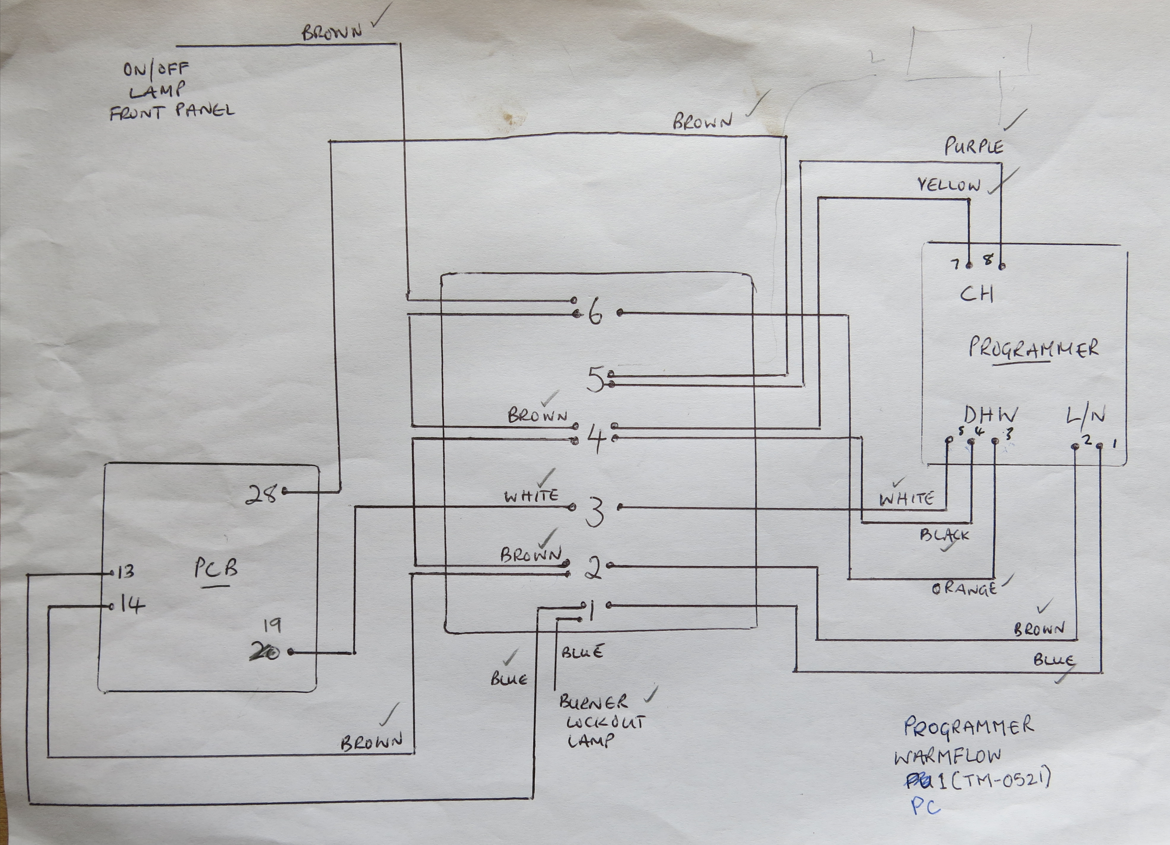 BROWN
ON/OFF
LAMP
FRONT PANEL
BROWN
PURPLE
YELLOW
7 8
CH
PROGRAMMER
DHW L/N
5 4 3 2 1
6
5
BROWN
4
WHITE
3
WHITE
BLACK
BROWN
2
ORANGE
1
BROWN
BLUE
BLUE
BLUE
28
PCB
13
14
19
20
BROWN
BURNER
LOCKOUT
LAMP
PROGRAMMER
WARMFLOW
1 (TM-0521)
PC